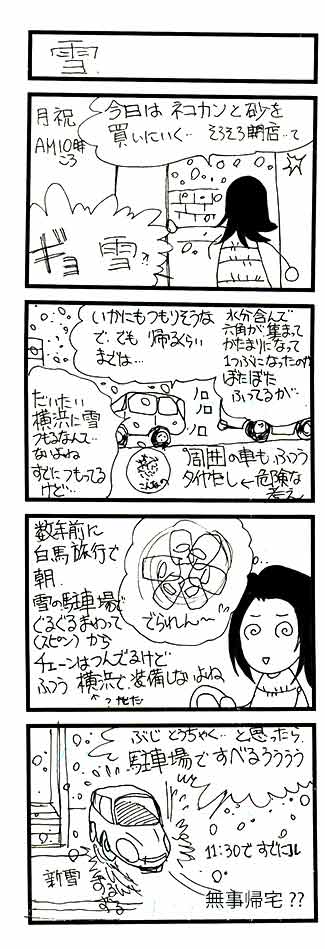 雪
月祝
AM10時
ころ
今日は ネコカンと砂を
買いにいく‥ そろそろ開店‥て
ギョ
雪
水分含んで
六角が集まって
かたまりになって
1つぶになったのが
ぼたぼた
ふってるが‥
いかにもつもりそうな
で‥でも 帰るくらい
までは…
ノロノロ
だいたい
横浜に雪
つもるなんて‥
ないよね
すでにつもってる
けど…
こんなの
周囲の車も ふつう
タイヤだし ← 危険な
考え
数年前に
白馬旅行で
朝、
雪の駐車場で
ぐるぐるまわって
(スピン) から
チェーンはつんでるけど
ふつう 横浜で 装備しないよね
でられん〜
ぶじ とうちゃく‥ と思ったら、
駐車場ですべるううう
11:30ですでに
新雪
ずるずる
無事帰宅??